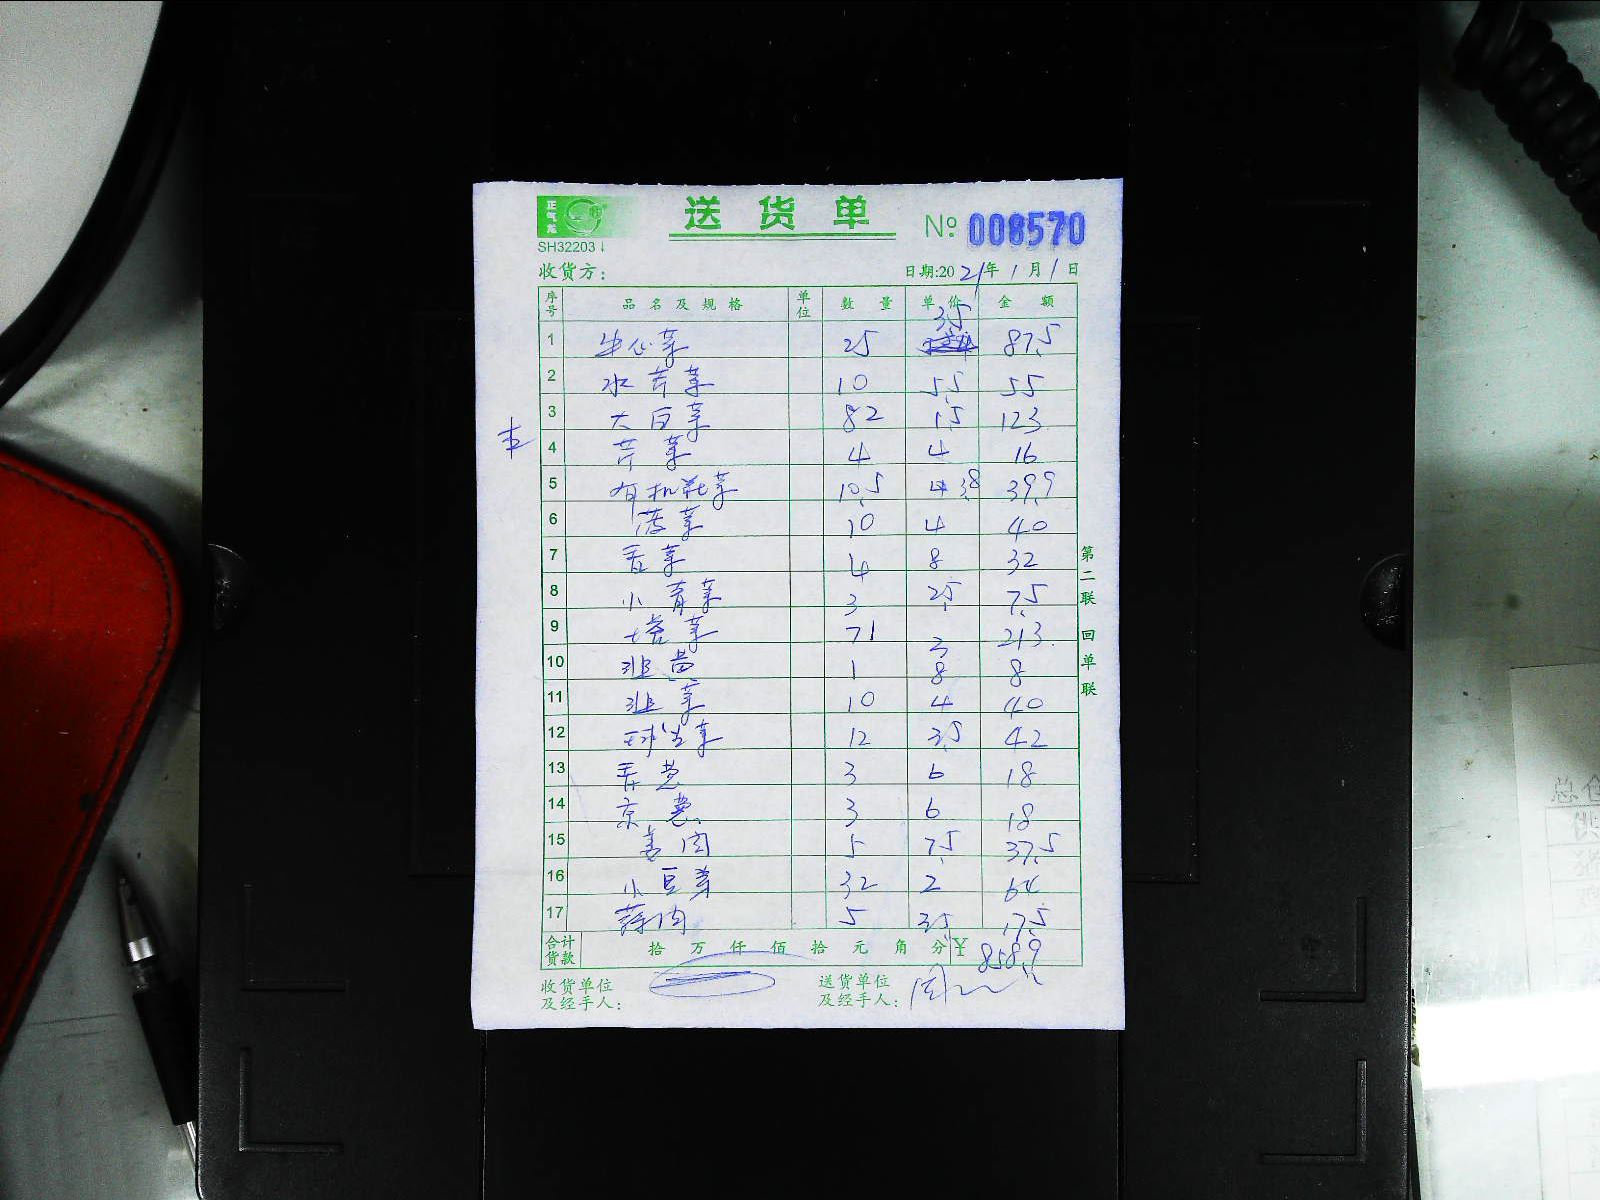 正气龙
送货单
SH32203
№ 008570
收货方:
日期:2021年1月1日
序号 品名及规格 单位 数量 单价 金额
1 牛心菜 25 3.5 87.5
2 水芹菜 10 5.5 55
3 大白菜 82 1.5 123
4 芹菜 4 4 16
5 有机花菜 10.5 3.8 39.9
6 菠菜 10 4 40
7 香菜 4 8 32
8 小青菜 3 2.5 7.5
9 塔菜 71 3 213
10 韭黄 1 8 8
11 韭菜 10 4 40
12 球生菜 12 3.5 42
13 香葱 3 6 18
14 京葱 3 6 18
15 姜肉 5 7.5 37.5
16 小豆芽 32 2 64
17 蒜肉 5 3.5 17.5
合计货款 拾 万 仟 佰 拾 元 角 分 ¥ 858.9
收货单位及经手人:
送货单位及经手人:
第二联 回单联